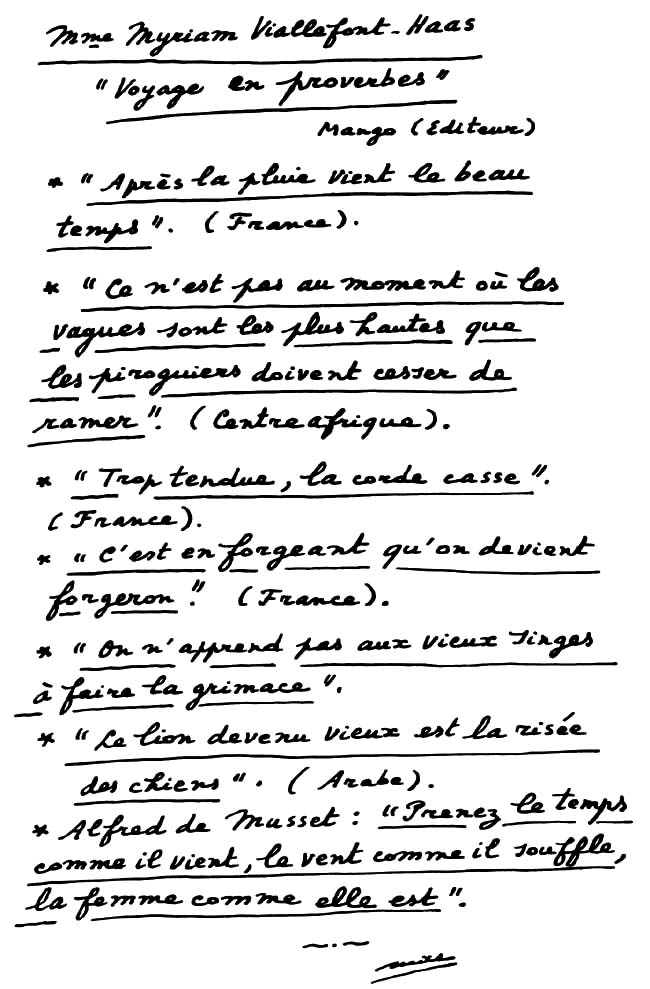 Mme Myriam Viallefont-Haas
"Voyage en proverbes"
Mango (Editeur)
* "Après la pluie vient le beau
temps". (France).
* "Ce n'est pas au moment où les
vagues sont les plus hautes que
les piroguiers doivent cesser de
ramer". (Centreafrique).
* "Trop tendue, la corde casse".
(France).
* "C'est en forgeant qu'on devient
forgeron". (France).
* "On n'apprend pas aux vieux singes
à faire la grimace".
* "Le lion devenu vieux est la risée
des chiens". (Arabe).
* Alfred de Musset : "Prenez le temps
comme il vient, le vent comme il souffle,
la femme comme elle est".